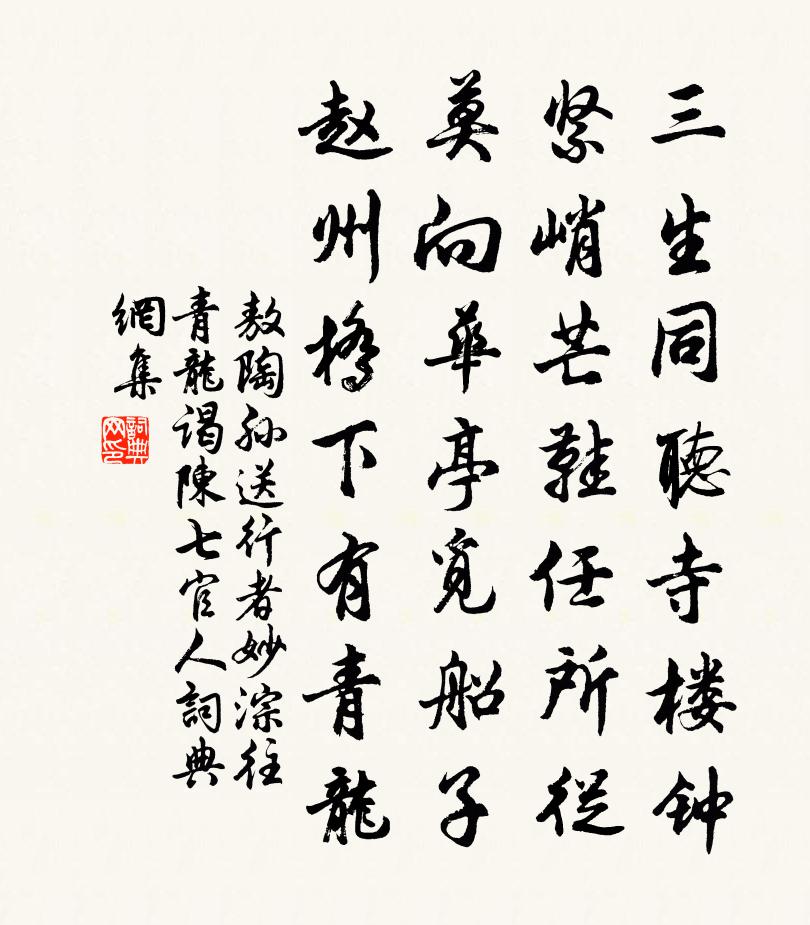 三生同聽寺楼钟
紧峭芒鞋任所從
莫向華亭覓船子
赵州橋下有青龍
敖陶孙送行者妙淙往
青龍謁陳七官人詞典
網集
詞典
网印